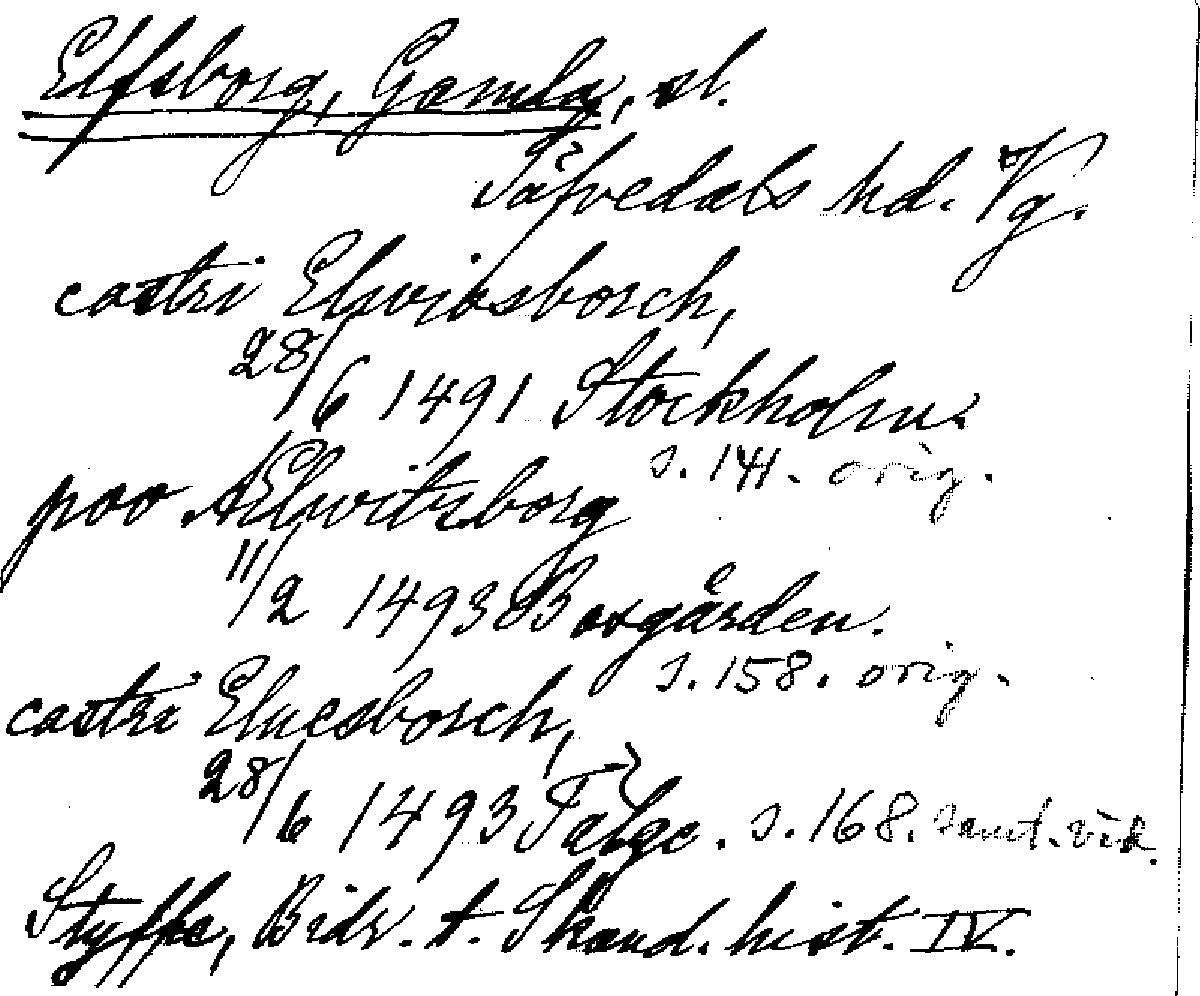 Elfsborg, Gamla, sl.
Säfvedals hd. Vg.
castri Elwisborch,
28/6 1491 Stockholm.
s. 141. orig.
poo Elwitzborg
11/2 1493 Boxgården.
s. 158. orig.
castri Eluesborch,
28/6 1493 Telge. s. 168. samt. vid.
Styffe, Bidr. t. Skand. hist. IV.